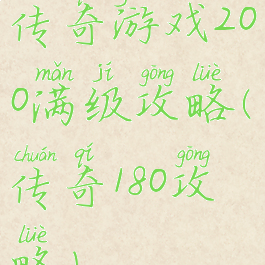 传奇游戏20
mǎn jí gōng lüè
0满级攻略(
chuán qí gōng
传奇180攻
lüè
略)